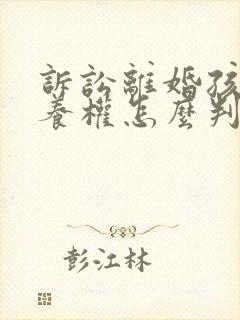 訴訟離婚孩
養權怎麼判
彭江林